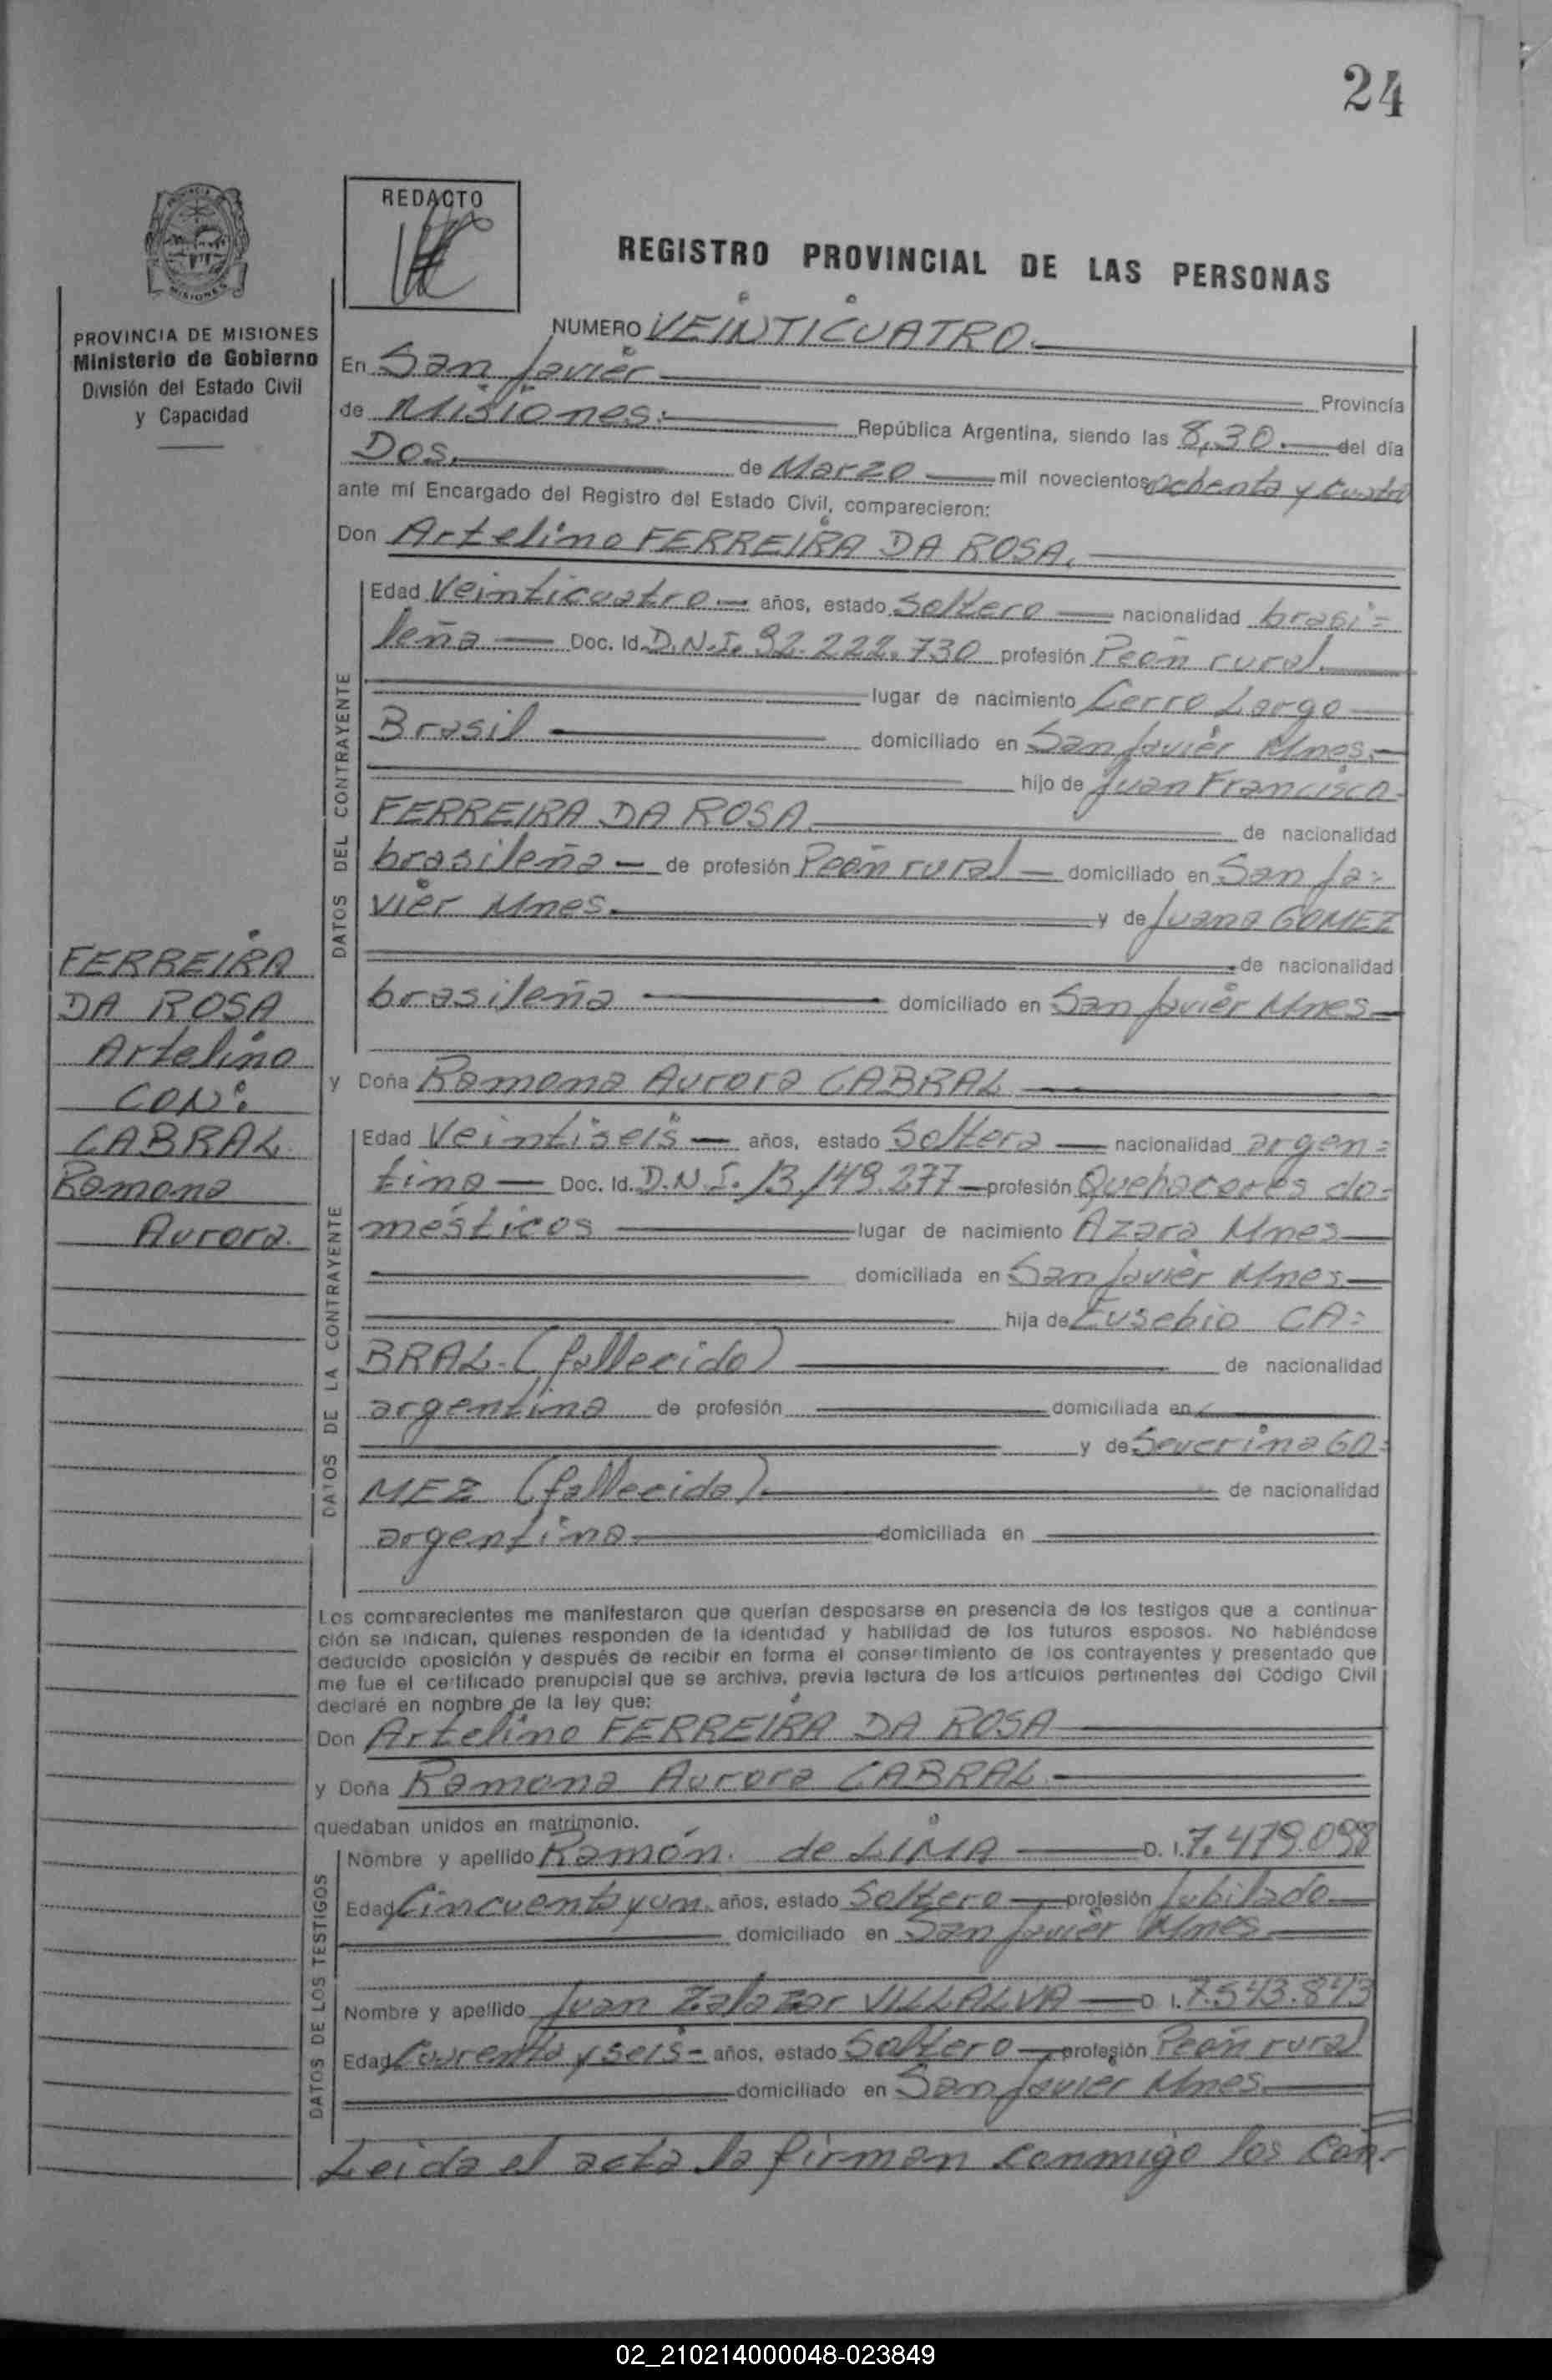 24
REDACTO
REGISTRO PROVINCIAL DE LAS PERSONAS
PROVINCIA DE MISIONES
Ministerio de Gobierno
División del Estado Civil
y Capacidad
NUMERO VEINTICUATRO.
En San Javier Provincia
de Misiones. República Argentina, siendo las 8,30. del día
Dos. de Marzo mil novecientos ochenta y cuatro
ante mí Encargado del Registro del Estado Civil, comparecieron:
Don Artelino FERREIRA DA ROSA.
DATOS DEL CONTRAYENTE
Edad Veinticuatro años, estado Soltero nacionalidad brasi=
leña Doc. Id. D.N.I. 92.222.730 profesión Peón rural.
lugar de nacimiento Cerro Largo
Brasil domiciliado en San Javier Mnes.
hijo de Juan Francisco
FERREIRA DA ROSA de nacionalidad
brasileña de profesión Peón rural domiciliado en San Ja=
vier Mnes. y de Juana GOMEZ
de nacionalidad
brasileña domiciliado en San Javier Mnes
FERREIRA
DA ROSA
Artelino
CON:
CABRAL
Ramona
Aurora.
y Doña Ramona Aurora CABRAL
DATOS DE LA CONTRAYENTE
Edad Veintiseis años, estado Soltera nacionalidad argen=
tina Doc. Id. D.N.I. 13.149.277 profesión Quehaceres do=
mésticos lugar de nacimiento Azara Mnes
domiciliada en San Javier Mnes.
hija de Eusebio CA=
BRAL.(fallecido) de nacionalidad
argentina de profesión domiciliada en
y de Severina GO=
MEZ (fallecida). de nacionalidad
argentina domiciliada en
Los comparecientes me manifestaron que querían desposarse en presencia de los testigos que a continua-
ción se indican, quienes responden de la identidad y habilidad de los futuros esposos. No habiéndose
deducido oposición y después de recibir en forma el consertimiento de los contrayentes y presentado que
me fue el certificado prenupcial que se archiva, previa lectura de los artículos pertinentes del Código Civil
declaré en nombre de la ley que:
Don Artelino FERREIRA DA ROSA
y Doña Ramona Aurora CABRAL
quedaban unidos en matrimonio.
DATOS DE LOS TESTIGOS
Nombre y apellido Ramón. de LIMA D. I. 7.479.098
Edad Cincuenta y un. años, estado Soltero profesión Jubilado
domiciliado en San Javier Mnes
Nombre y apellido Juan Zalazar VILLALVA D. I. 7.543.843
Edad Cuarenta y seis= años, estado Soltero profesión Peón rural
domiciliado en San Javier Mnes.
Leida el acta la firman conmigo los con-
02_210214000048-023849